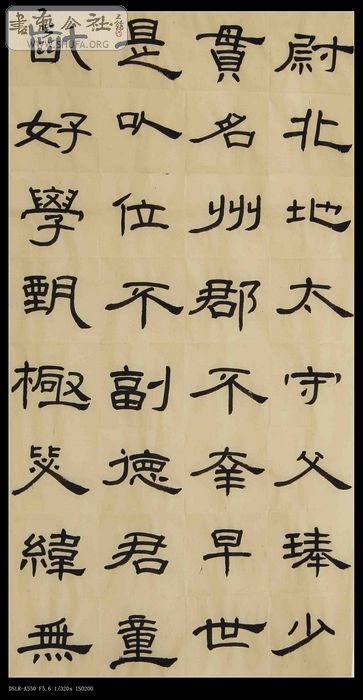 書藝公社
WWW.SHUFA.ORG
尉北地太守父琫少
貫名州郡不幸早世
是以位不副德君童
齔好學甄極毖緯無
DSLR-A550 F5.6 1/320s ISO200